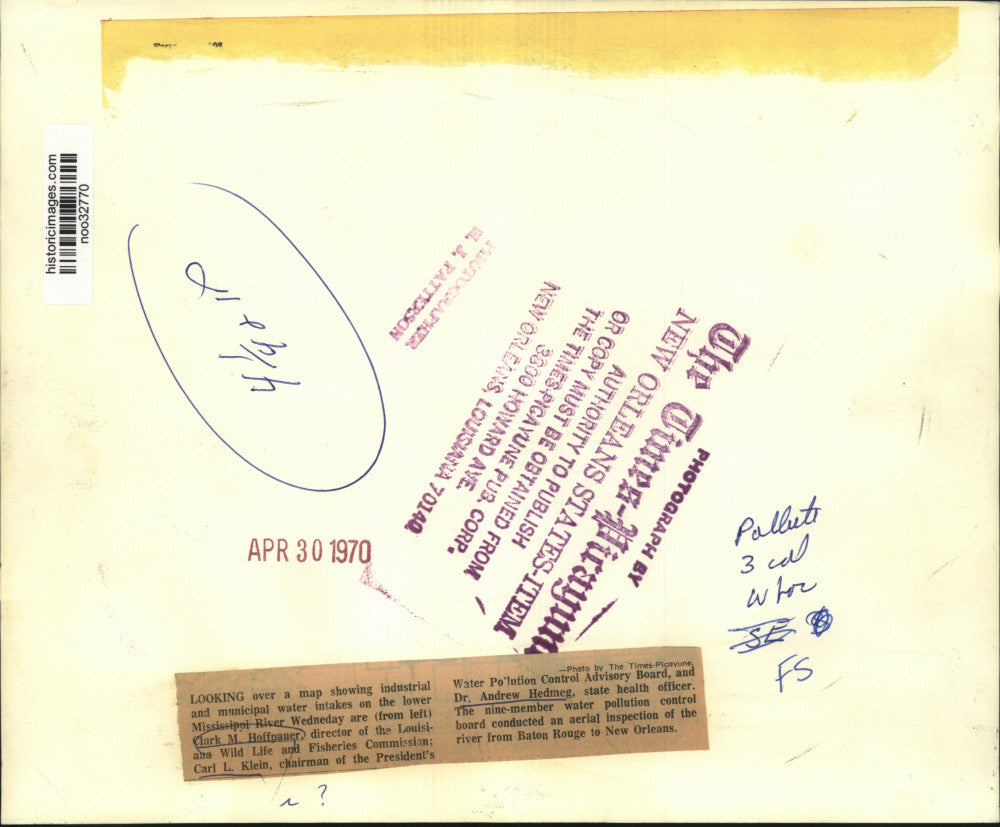 historicimages.com
noo32770
PHOTOGRAPHER
H. J. PATTERSON
PHOTOGRAPH BY
The Times-Picayune
NEW ORLEANS STATES-ITEM
AUTHORITY TO PUBLISH
OR COPY MUST BE OBTAINED FROM
THE TIMES-PICAYUNE PUB. CORP.
3800 HOWARD AVE.
NEW ORLEANS, LOUISIANA 70140
APR 30 1970
Pollute
3 col
FS
LOOKING over a map showing industrial
and municipal water intakes on the lower
Mississippi River Wedneday are (from left)
Clark M. Hoffpauer, director of the Louisi-
ana Wild Life and Fisheries Commission;
Carl L. Klein, chairman of the President's
—Photo by The Times-Picayune.
Water Po'lution Control Advisory Board, and
Dr. Andrew Hedmeg, state health officer.
The nine-member water pollution control
board conducted an aerial inspection of the
river from Baton Rouge to New Orleans.
?